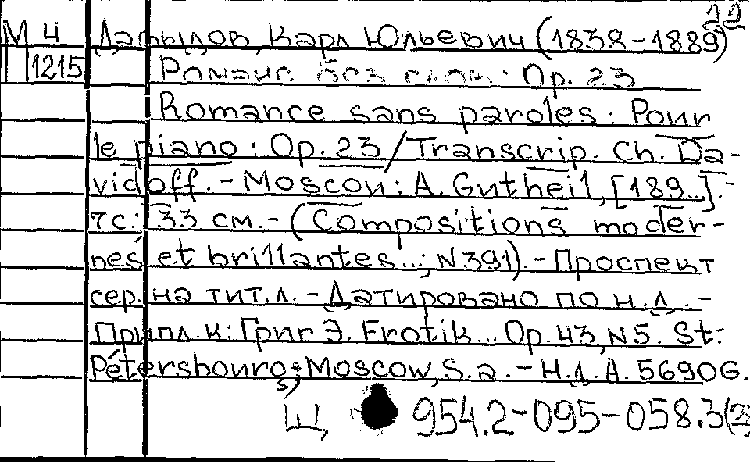 22
М 4 Давыдов, Карл Юльевич (1838-1889)
1215 Романс без слов: Ор. 23
Romance sans paroles: Pour
le piano: Op. 23/Transcrip. Ch. Da-
vidoff. - Moscou: A. Gutheil, [189..].-
7с.; 33 см. - (Compositions moder-
nes et brillantes...; N391). - Проспект
сер. на тит. л. - Датировано по н.д. -
Припл. к: Григ Э. Erotik... Op. 43, N5. St:
Pétersbourg; Moscow, S. a. - Н.д. А. 5690 G.
Щ 954.2-095-058.3(2)